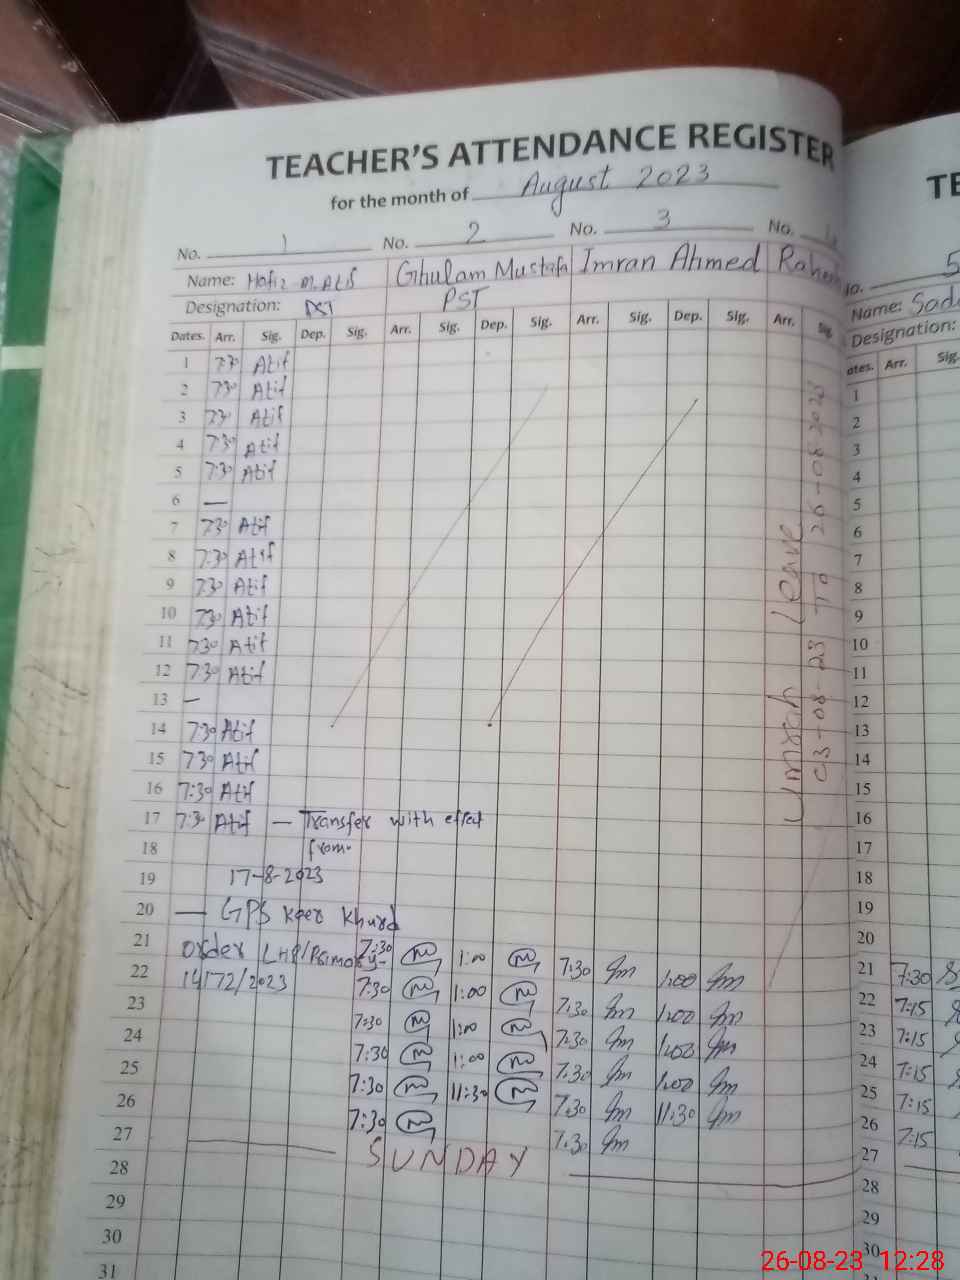 TEACHER'S ATTENDANCE REGISTER
for the month of August 2023
No. 1 No. 2 No. 3 No.
Name: Hafiz M. Atif Ghulam Mustafa Imran Ahmed
Designation: PST PST
Dates. Arr. Sig. Dep. Sig. Arr. Sig. Dep. Sig. Arr. Sig. Dep. Sig. Arr. Sig.
1 7:30 Atif
2 7:30 Atif
3 7:30 Atif
4 7:30 Atif
5 7:30 Atif
6 —
7 7:30 Atif
8 7:30 Atif
9 7:30 Atif
10 7:30 Atif
11 7:30 Atif
12 7:30 Atif
13 —
14 7:30 Atif
15 7:30 Atif
16 7:30 Atif
17 7:30 Atif — Transfer with effect
18 from
19 17-8-2023
20 — GPS Kaer Khurd
21 order LHR/Primary- 7:30 1:00 7:30 1:00
22 14172/2023 7:30 1:00 7:30 1:00
23 7:30 1:00 7:30 1:00
24 7:30 1:00 7:30 1:00
25 7:30 11:30 7:30 11:30
26 7:30 7:30
27 SUNDAY
28
29
30
31
Umrah Leave
03-08-23 TO 26-08-2023
TE
5
No.
Name:
Designation:
ates. Arr. Sig.
1
2
3
4
5
6
7
8
9
10
11
12
13
14
15
16
17
18
19
20
21 7:30
22 7:15
23 7:15
24 7:15
25 7:15
26 7:15
27
28
29
30
26-08-23 12:28